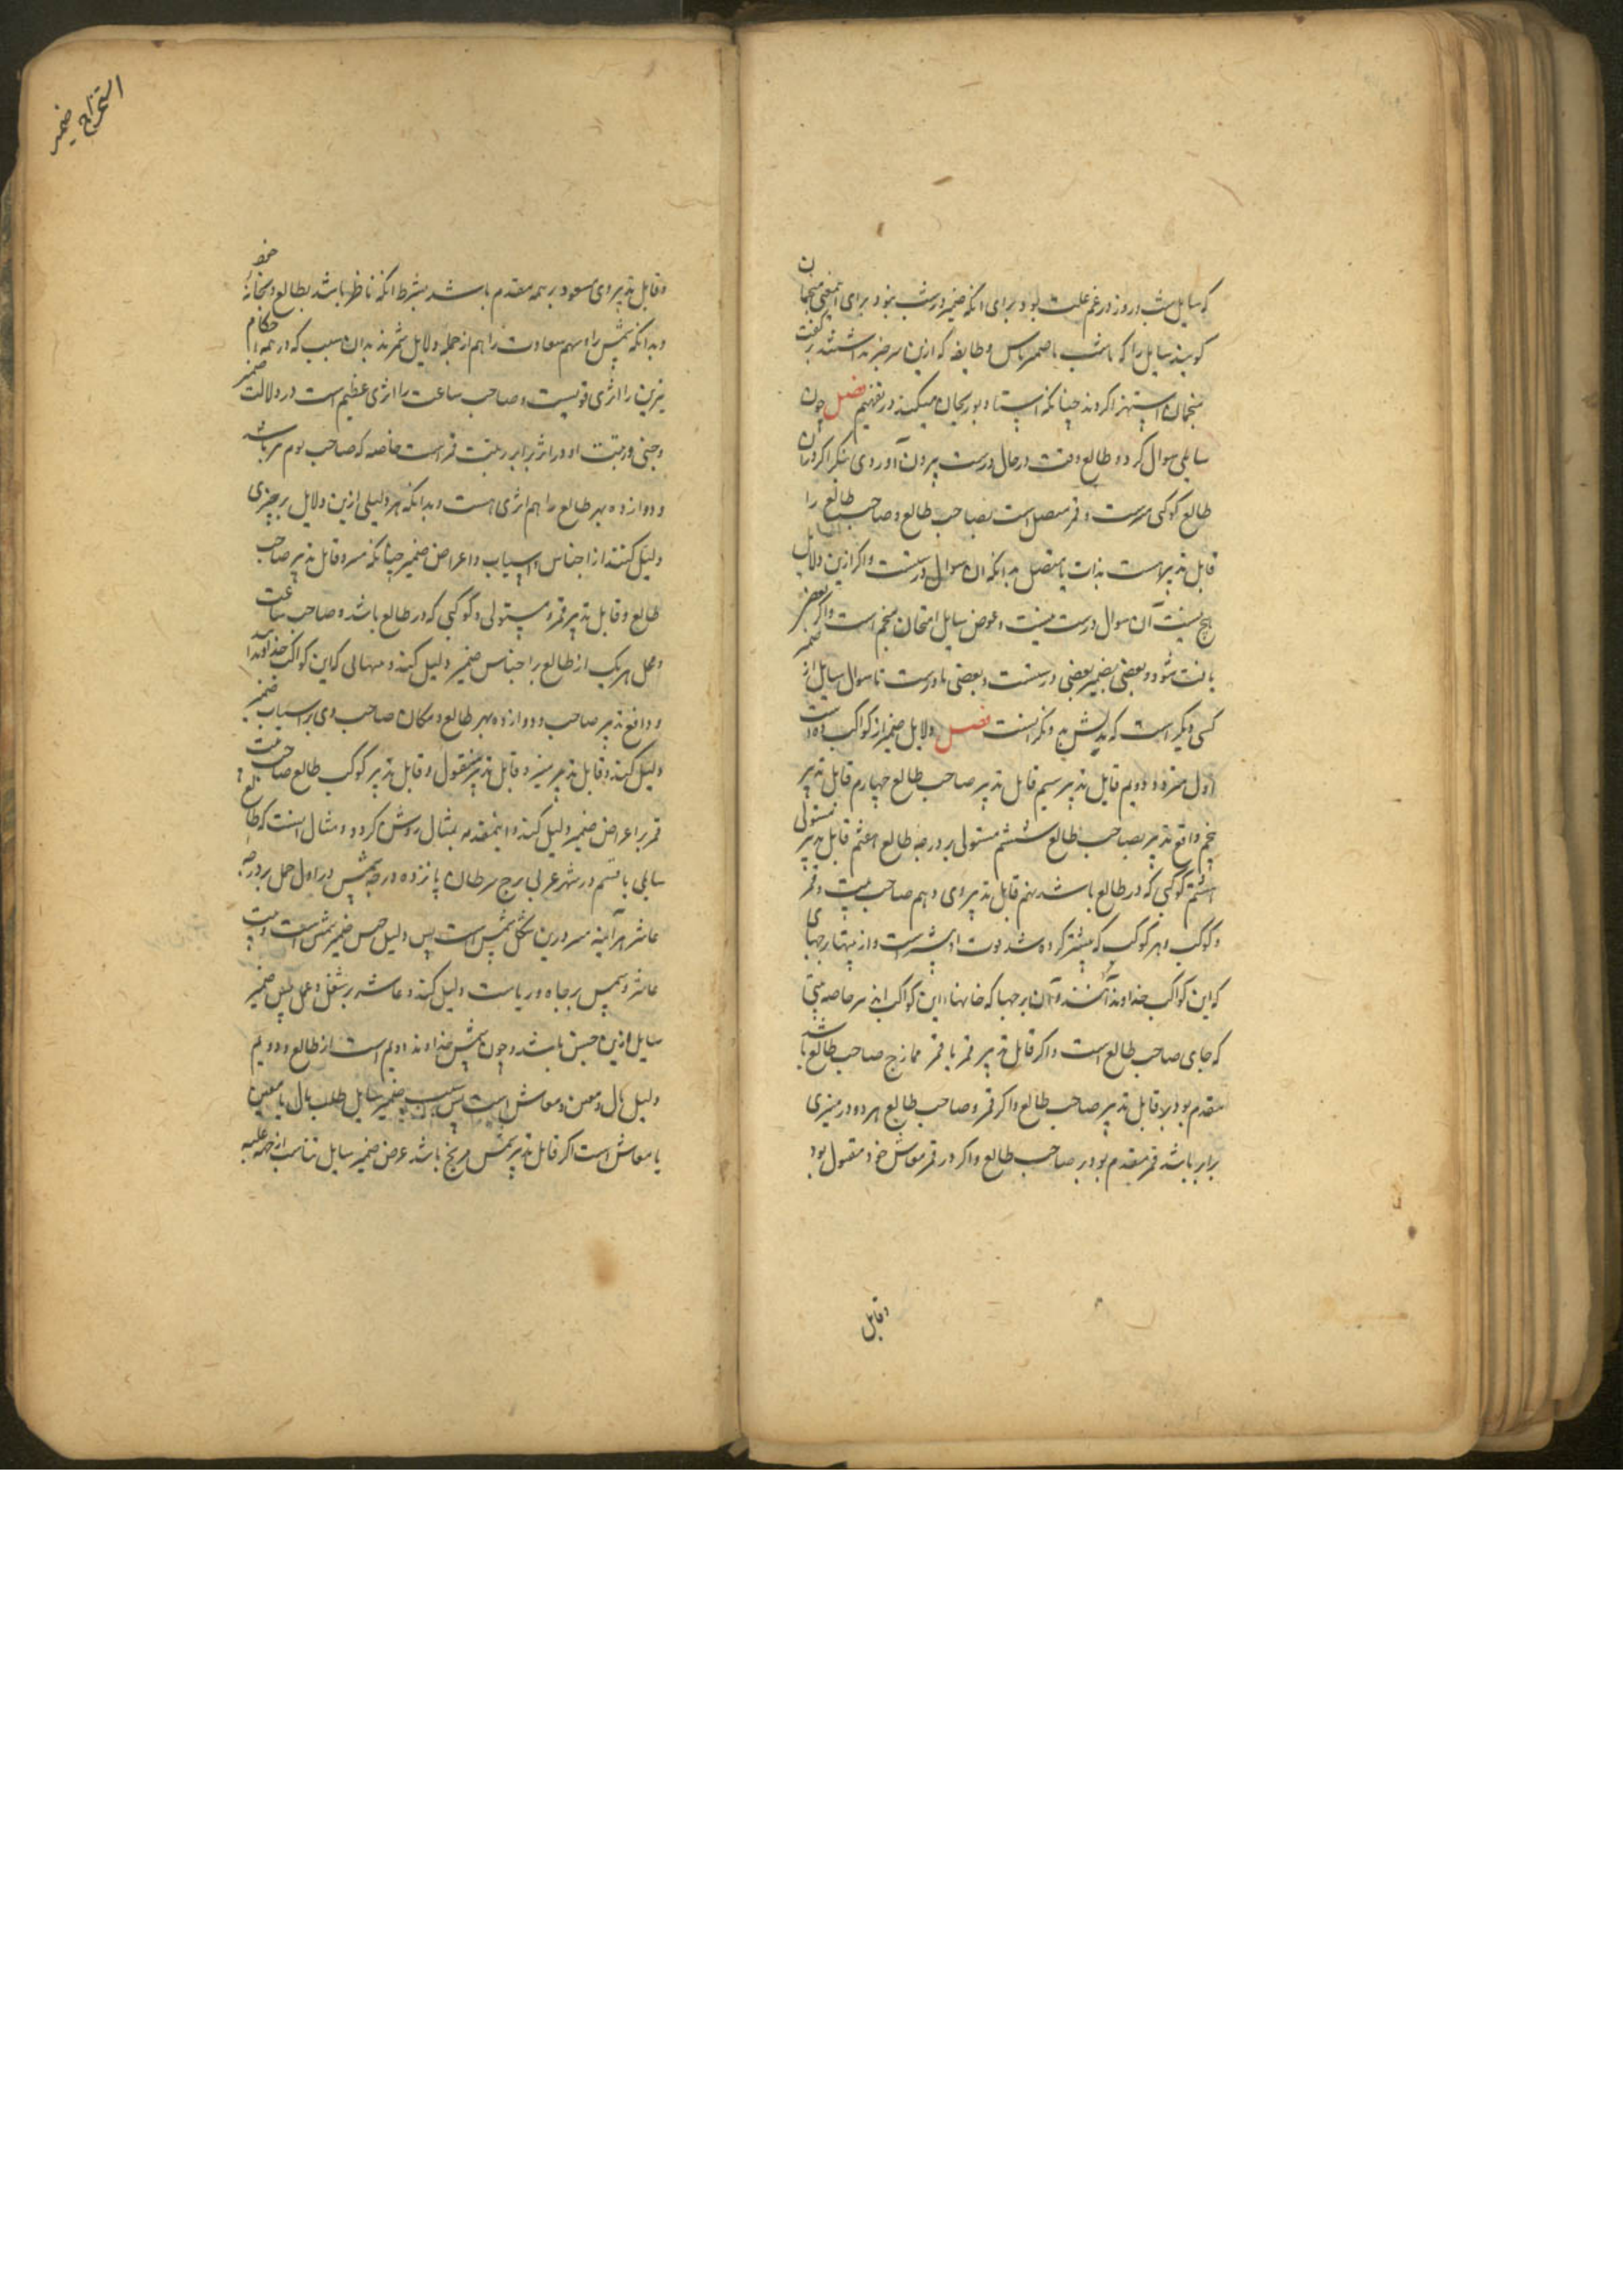 که سایل شب و روز در غم علت بود برای انکه ضمیر درشب بنود برای منجمان
کویند سایل را که باشب با ضمیر باس و طایفه که ازین سر خبر نداشتند
منجمان استهزا کردند چنانکه استاد بوریحان میکند در تفهیم فصل چون
سایلی سوال کرد و طالع وقت در حال درست بیرون آوردی بنکر اکر در
طالع کوکبی هست و قمر متصل است بصاحب طالع و صاحب طالع را
قابل تدبیر است بذات یا متصل بدانکه ان سوال درستست و اکر ازین دلایل
هیچ نیست آن سوال درست نیست و عوض سایل امتحان منجم است واکر بعضی
یافت شود و بعضی ضمیر بعضی درستست و بعضی نادرست تا سوال سایل از
کسی دیکر است که فصل دلایل ضمیر از کواکب ده است
اول دویم قابل تدبیر سیم قابل تدبیر صاحب طالع چهارم قابل تدبیر
پنجم دافع تدبیر بصاحب طالع ششم مستولی بر درجه طالع هفتم قابل تدبیر مستولی
هشتم کوکبی که در طالع باشد نهم قابل تدبیر وی دهم صاحب بیت و قمر
و کوکب و هر کوکب که بیشتر کرده شد قوت او بیشتر است و از بیتها برجهای
که این کواکب خداوند آنند و آن برجها که خانهاء این کواکب اند خاصه بیتی
که جای صاحب طالع است و اکر قابل تدبیر قمر با قمر ممازج صاحب طالع باشد
مقدم بود بر قابل تدبیر صاحب طالع و اکر قمر و صاحب طالع هر دو در چیزی
برابر باشد قمر مقدم بود بر صاحب طالع و اکر در قمر معاش خود مقبول بود
وقابل
استخراج ضمیر
وقابل تدبیر وی مسعود بر همه مقدم باشد بشرط انکه ناظر باشد بطالع و بخانه خود
وبدانکه شمس را و سهم سعادت را هم از جمله دلایل شمرند بدان سبب که در همه احکام
نیرین را اثری قویست و صاحب ساعت را اثری عظیم است در دلالت ضمیر
و رتبت او در اثر برابر رتبت قمر است خاصه که صاحب یوم هم باشد
و دوازده بهر طالع را هم اثری هست و بدانکه هر دلیلی ازین دلایل بر چیزی
دلیل کنند از اجناس و اسباب و اعراض ضمیر چنانکه و قابل تدبیر صاحب
طالع و قابل تدبیر قمر و مستولی و کوکبی که در طالع باشد و صاحب ساعت
و محل هریک از طالع بر اجناس ضمیر دلیل کند و که این کواکب خداوند
و دافع تدبیر صاحب و دوازده بهر طالع و مکان صاحب وی بر اسباب ضمیر
دلیل کنند و قابل تدبیر و قابل تدبیر و قابل تدبیر کوکب طالع صاحب
قمر بر اعراض ضمیر دلیل کند و اینمقدمه بمثال روشن کردد و مثال اینست که طالع
سایلی یافتیم در شهر برج سرطان پانزده درجه شمس در اول حمل بر درجه
عاشر هر آینه درین شکل شمس است پس دلیل جنس ضمیر شمس است
عاشر و شمس بر جاه و ریاست دلیل کند و عاشر بر شغل و عمل پس ضمیر
سایل ازین جنس باشد و چون شمس خداوند دویم است از طالع و دویم
دلیل مال و معین و معاش است پس سبب ضمیر سایل طلب مال یا معین
یا معاش است اکر قابل تدبیر شمس مریخ باشد عرض ضمیر سایل